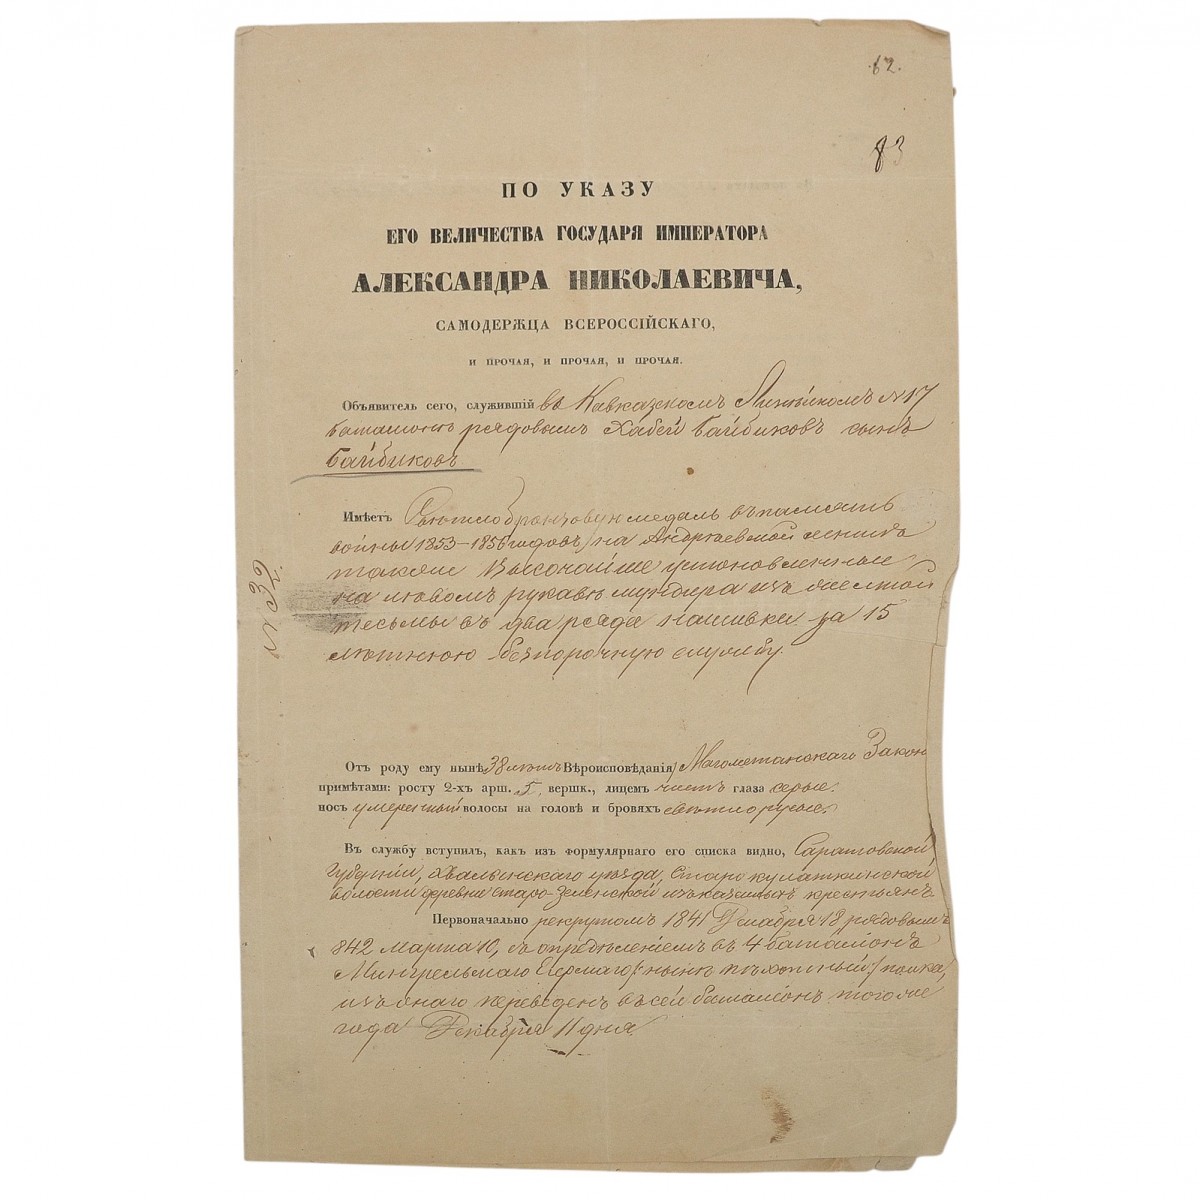 62.
83
ПО УКАЗУ
ЕГО ВЕЛИЧЕСТВА ГОСУДАРЯ ИМПЕРАТОРА
АЛЕКСАНДРА НИКОЛАЕВИЧА,
САМОДЕРЖЦА ВСЕРОССІЙСКАГО,
И ПРОЧАЯ, И ПРОЧАЯ, И ПРОЧАЯ.
Объявитель сего, служившій въ Кавказскомъ Линѣйномъ №17
баталіонѣ рядовымъ Хабей Байбиковъ сынъ
Байбиковъ
Имѣетъ Свѣтлобронзовую медаль въ память
войны 1853–1856 годовъ, на Андреевской лентѣ
также Высочайше установленныя
на лѣвомъ рукавѣ мундира изъ желтой
тесьмы въ два ряда нашивки за 15
лѣтнюю безпорочную службу.
Отъ роду ему нынѣ 38 лѣтъ Вѣроисповѣданія Магометанскаго Закон
примѣтами: росту 2-хъ арш. 5 вершк., лицемъ чистъ глаза серые.
носъ умеренный волосы на головѣ и бровяхъ свѣтлорусые.
Въ службу вступилъ, какъ изъ формулярнаго его списка видно, Саратовской
Губерніи, Хвалынскаго уѣзда, Старокулаткинской
волости деревни Старо-Зеленской изъ казенныхъ крестьянъ
Первоначально рекрутомъ 1841 Декабря 18 рядовымъ
842 Марта 10, съ опредѣленіемъ въ 4 баталіонъ
Мингрельскаго Егерскаго /:нынѣ пѣхотный:/ полка,
изъ онаго переведенъ въ сей баталіонъ того же
года Декабря 11 дня.